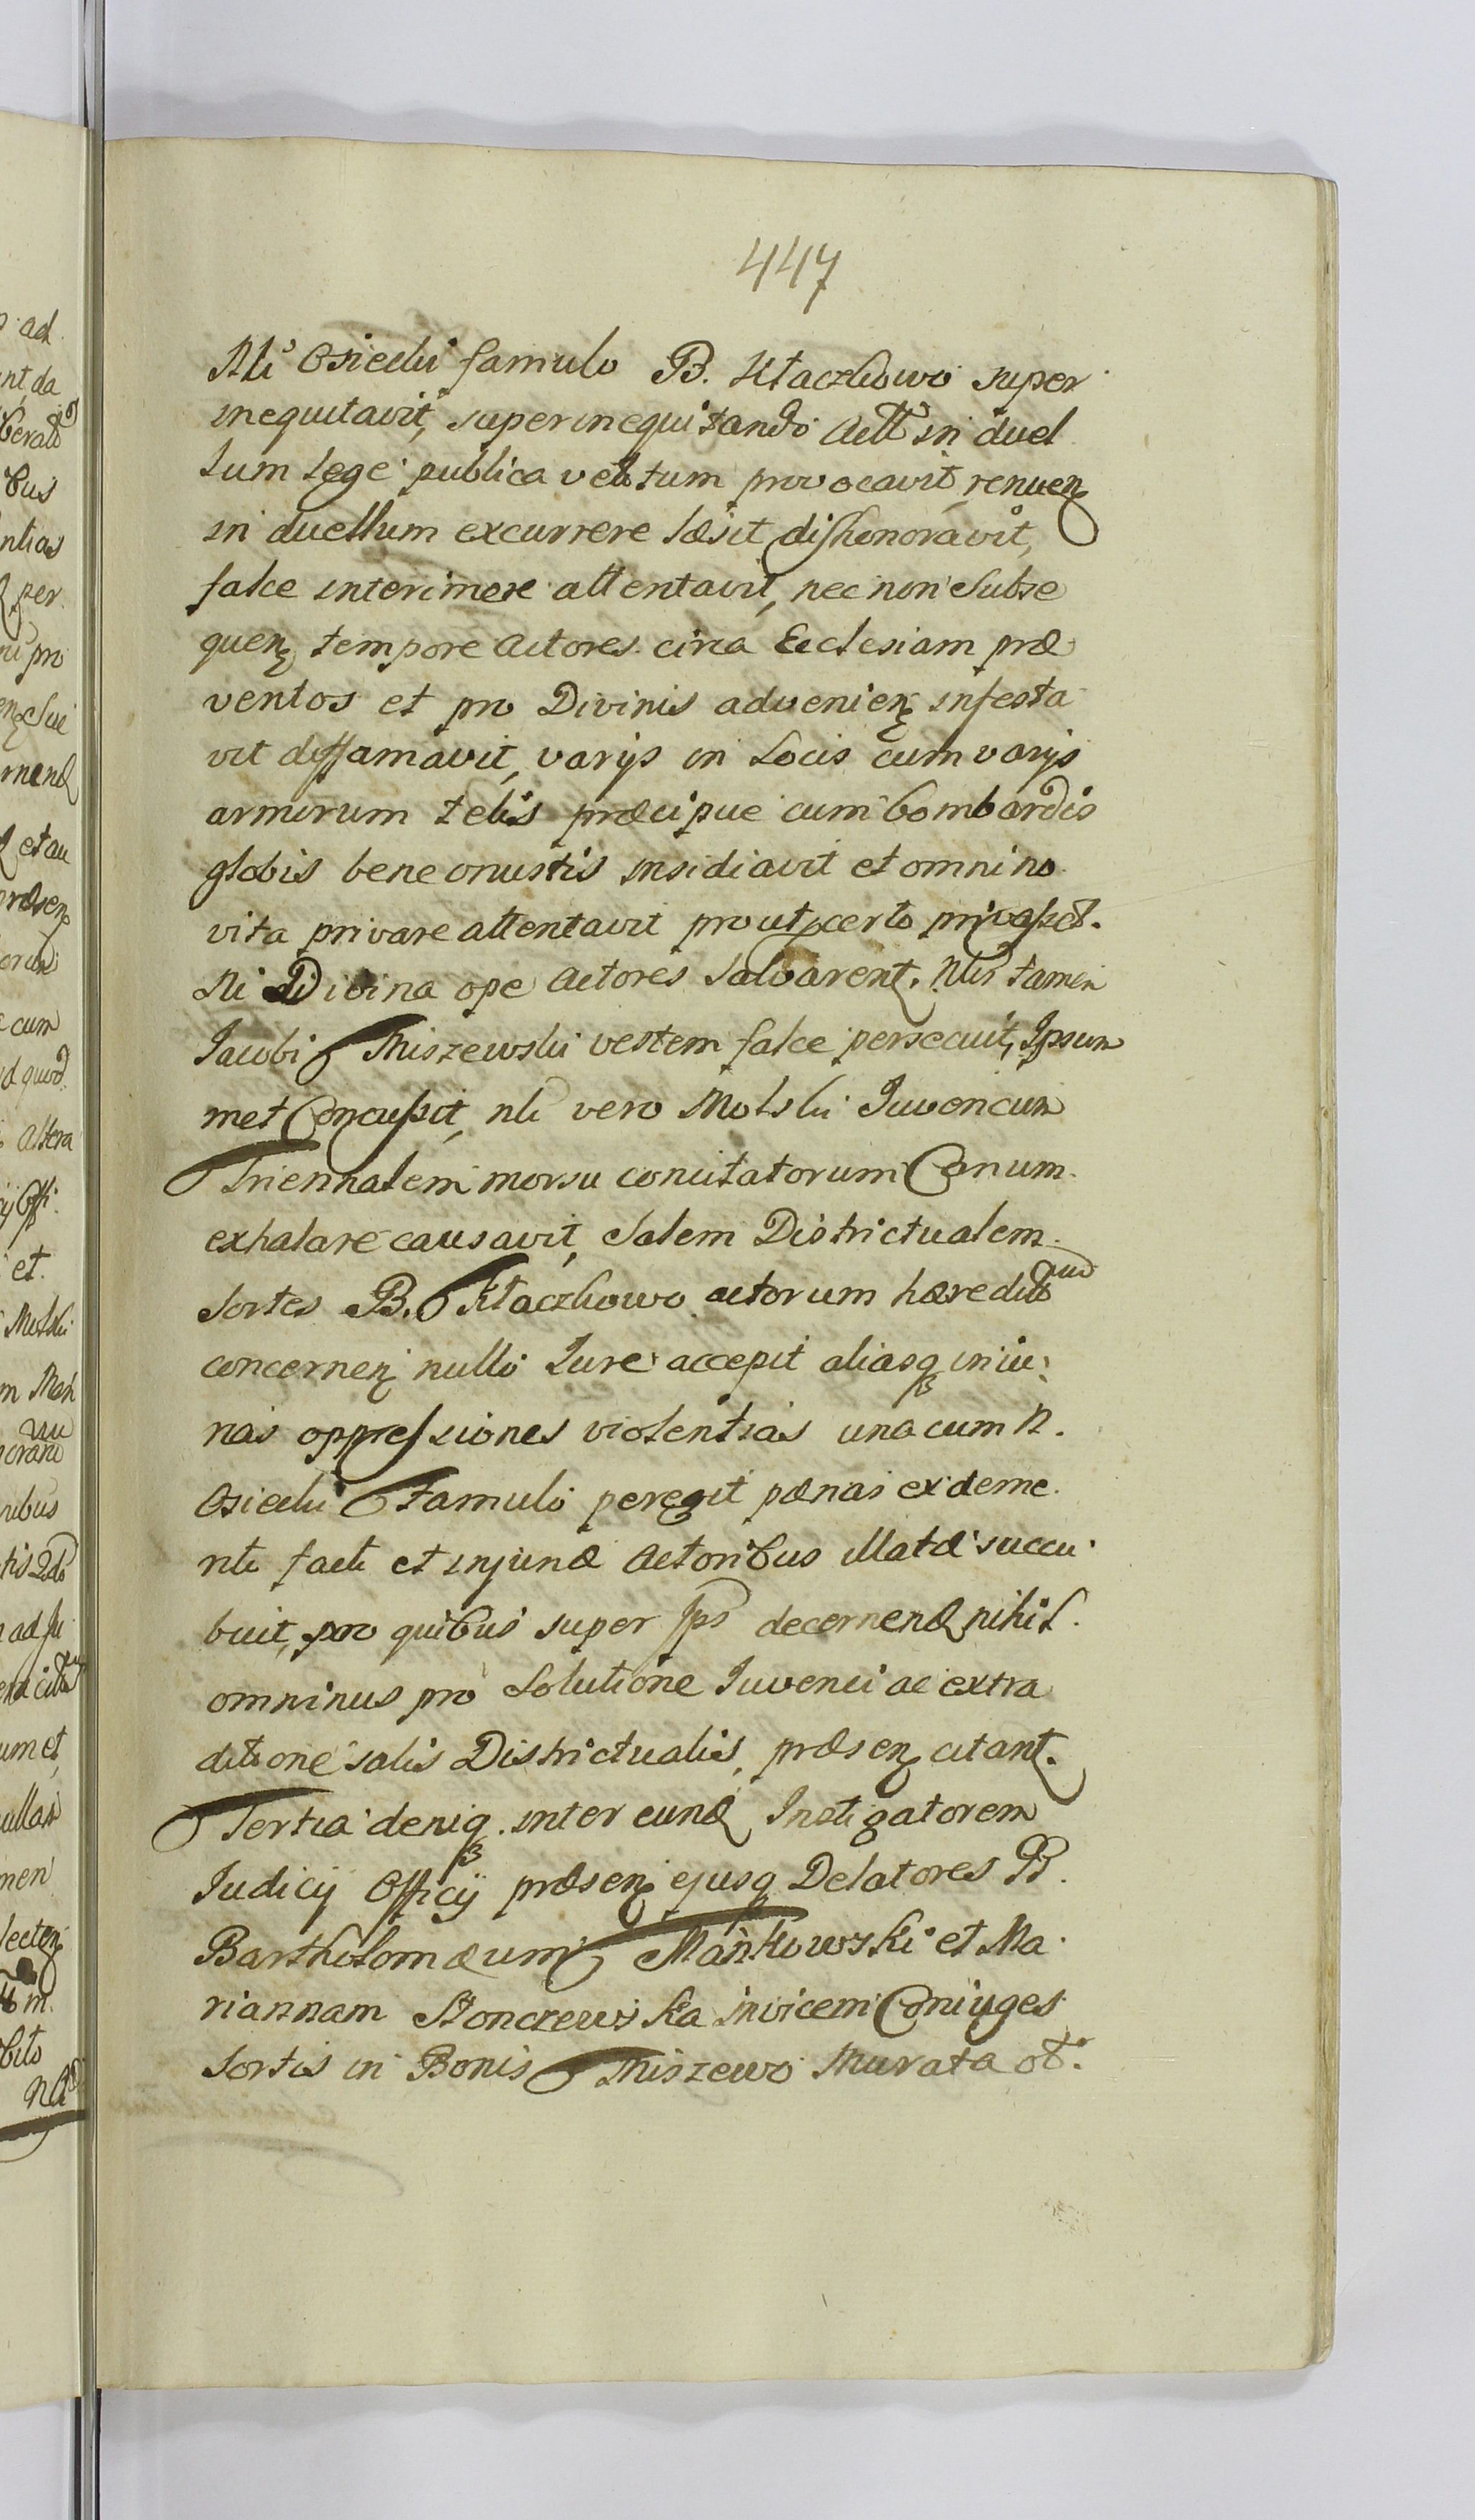 447
Nli Osiecki famulo B. Kłaczkowo super
inequitavit, superinequitando Actt in duel
lum lege publica vetitum provocavit, renuen
in duellum excurrere læsit dishonoravit,
falce interimere attentavit, nec non Subse
quen tempore Actores circa Ecclesiam præ
ventos et pro Divinis advenien infesta
vit diffamavit, varijs in Locis cum varijs
armorum telis præcipue cum bombardis
globis bene onustis insidiavit et omnino
vita privare attentavit prout certo privasset.
Ni Divina ope Actores Salvarent. Nlis tamen
Iacobi Miszewski vestem falce persecuit, Ipsum
met Concussit, nli vero Molski Iuvencum
Triennalem morsu concitatorum Canum
exhalare causavit, Salem Districtualem
Sortes B. Kłaczkowo actorum hæredit
concernen nullo Iure accepit aliasq iniu
rias oppressiones violentias una cum N.
Osiecki Famulo peregit pænas ex deme
rito facti et injuriæ Actoribus illatæ succu
buit, pro quibus super Ips decernend nihil
omninus pro Solutione Iuvenci ac extra
ditione salis Districtualis, præsen citant.
Tertia deniq. inter eund Instigatorem
Iudicij Officij præsen ejusq Delatores B.
Bartholomæum Mańkowski et Ma
riannam Słonczewska invicem Coniuges
Sortis in Bonis Miszewo Murata ot.